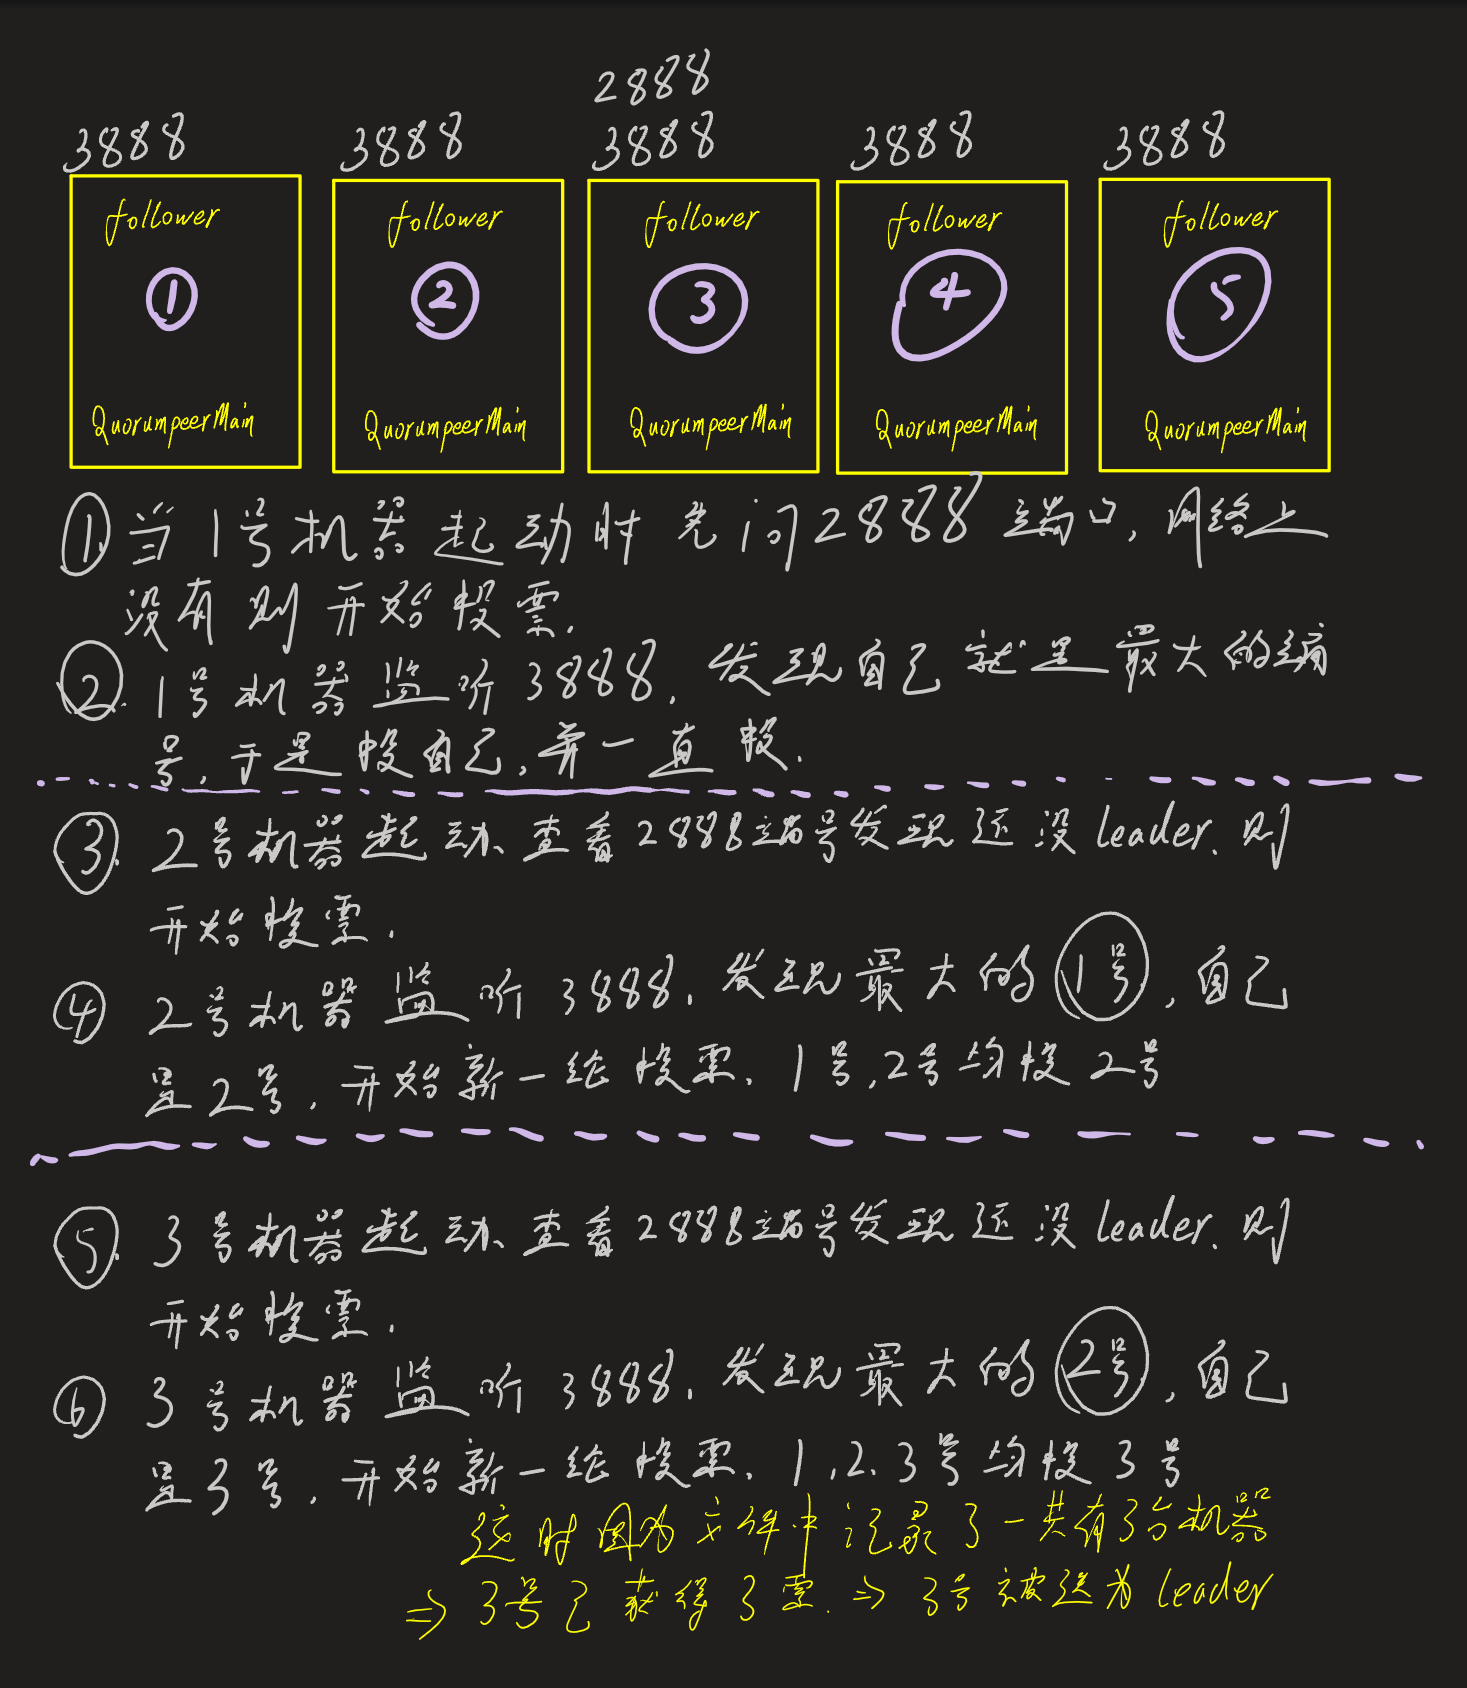 2888
3888 3888 3888 3888 3888
follower follower follower follower follower
① ② ③ ④ ⑤
QuorumpeerMain QuorumpeerMain QuorumpeerMain QuorumpeerMain QuorumpeerMain
①当1号机器起动时先问2888端口,网络上
没有则开始投票.
②.1号机器监听3888,发现自己就是最大的编
号,于是投自己,并一直投.
③.2号机器起动、查看2888端号发现还没leader.则
开始投票.
④2号机器监听3888,发现最大的1号,自己
是2号,开始新一轮投票、1号,2号均投2号
⑤.3号机器起动、查看2888端号发现还没leader.则
开始投票.
⑥3号机器监听3888,发现最大的2号,自己
是3号,开始新一轮投票、1,2、3号均投3号
这时因为文件中记录了一共有3台机器
⇒3号已获得3票.⇒3号被选为leader